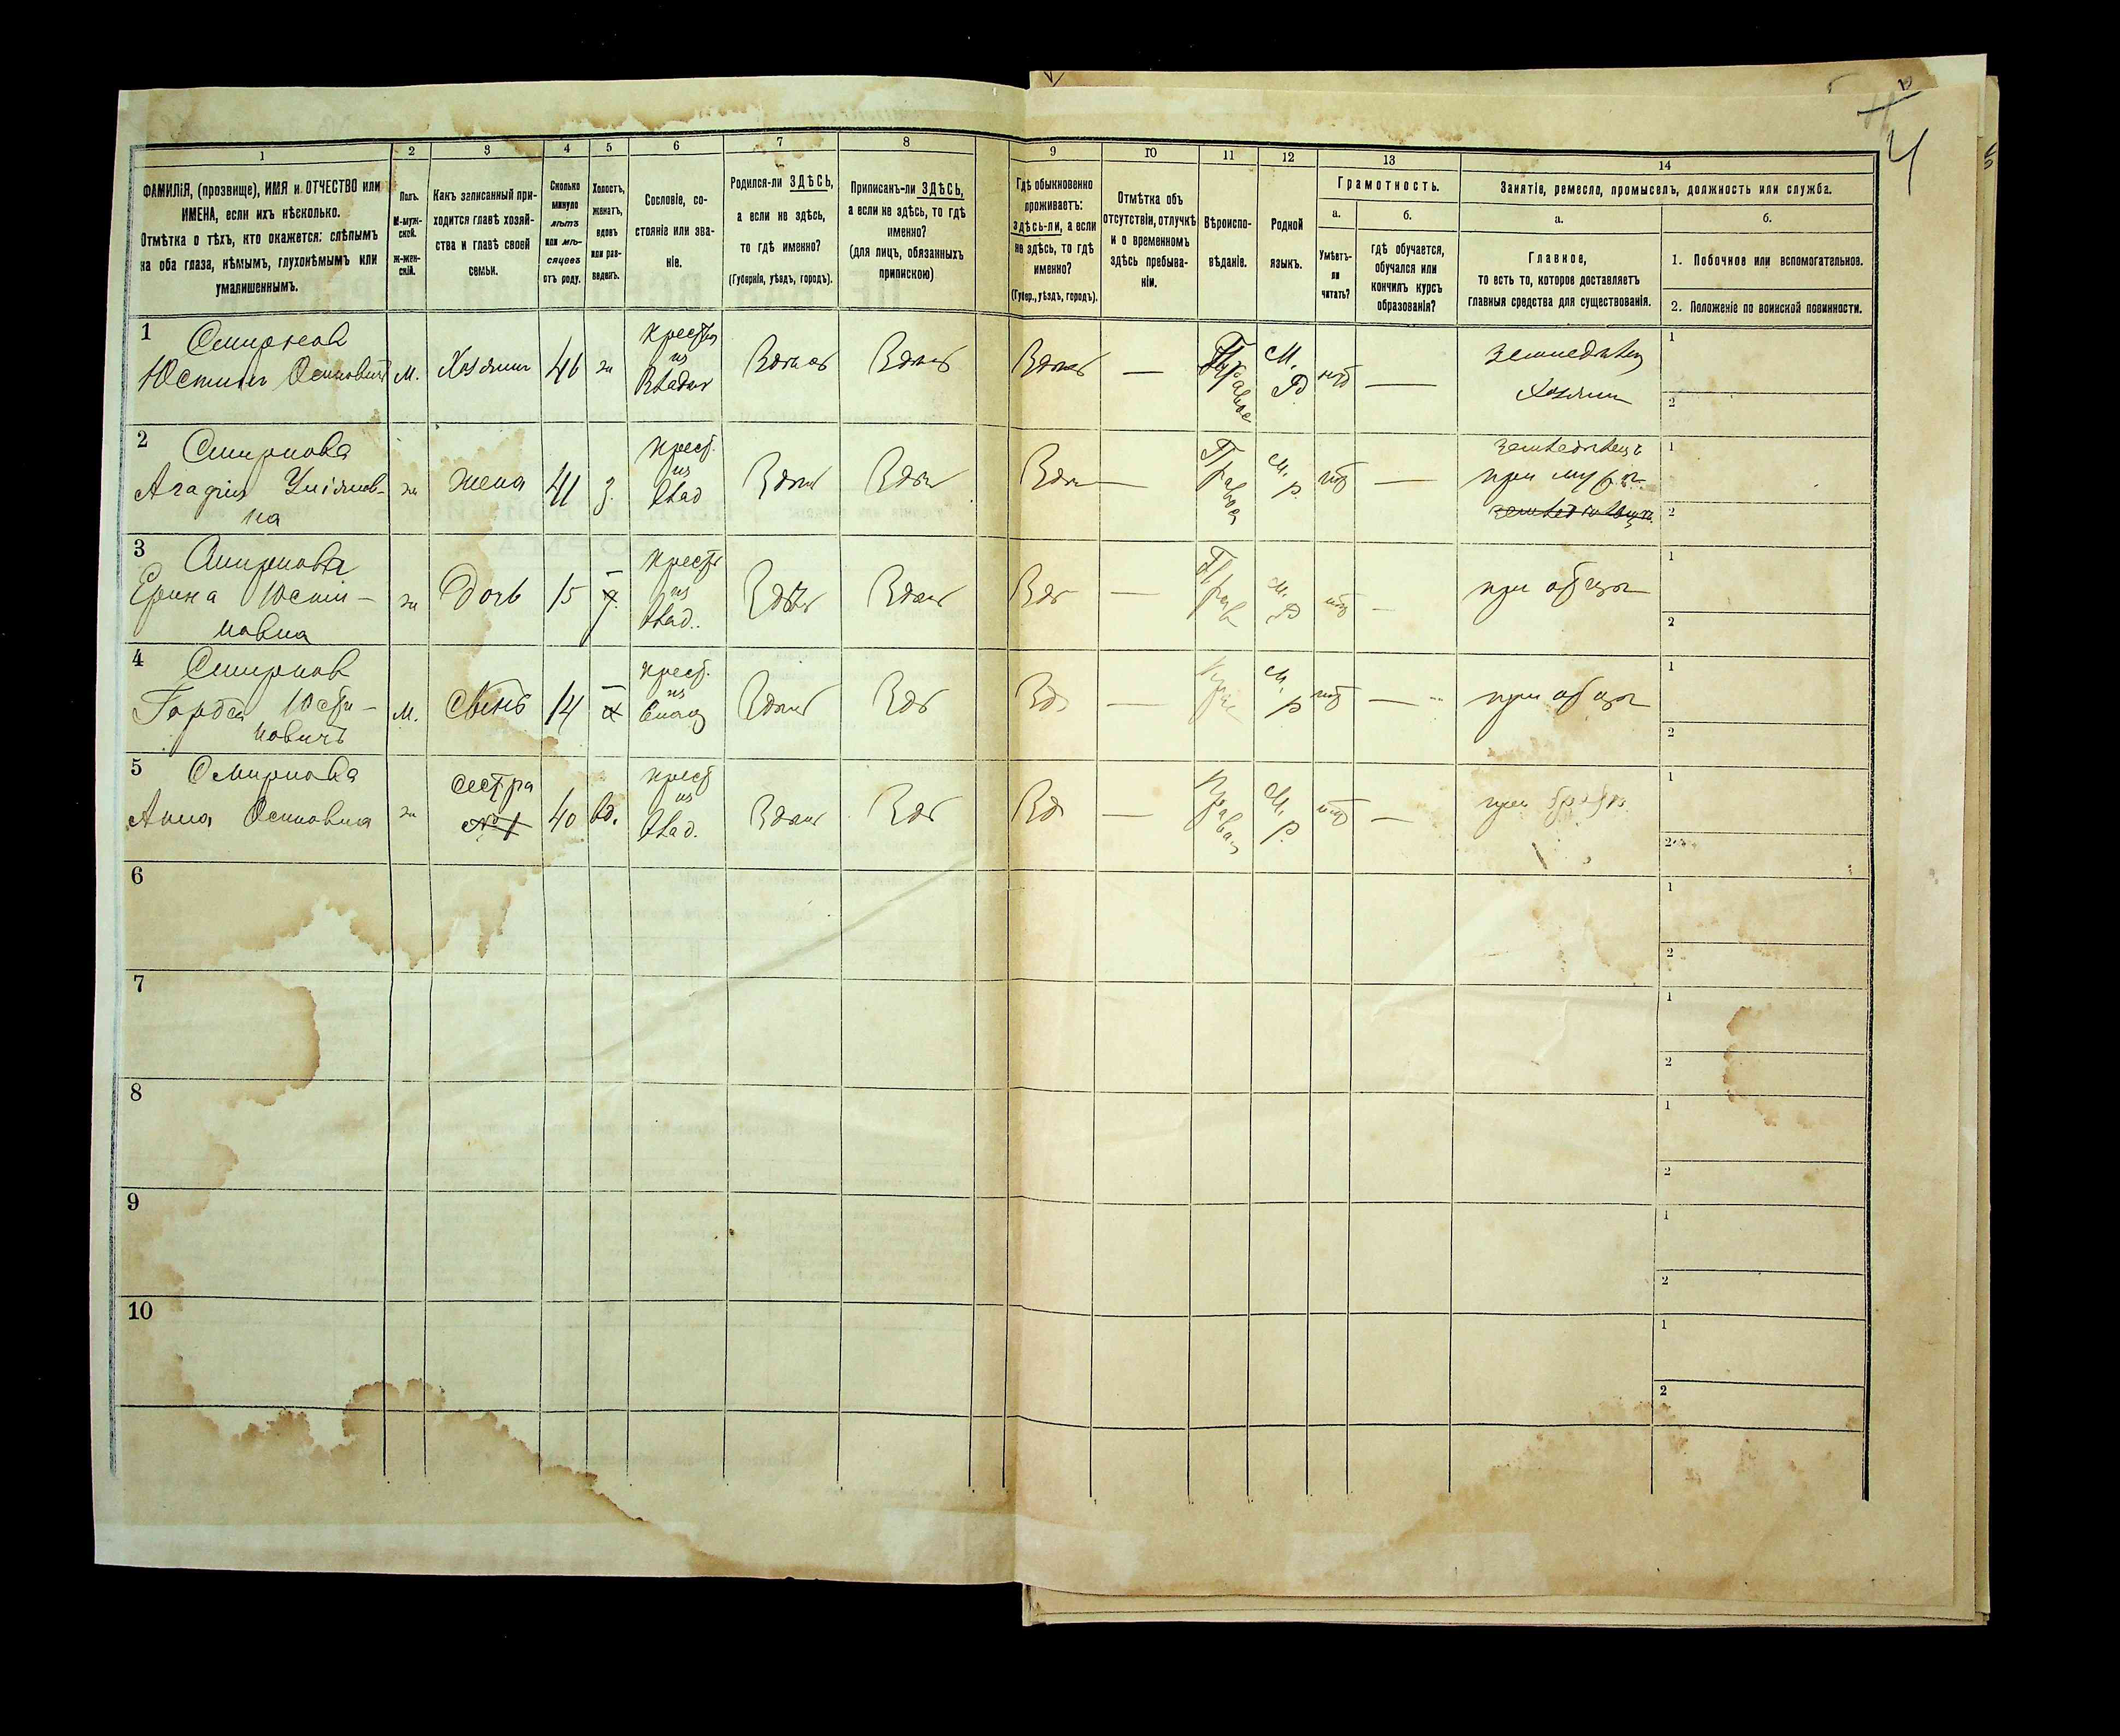 4
1
2
3
4
5
6
7
8
ФАМИЛІЯ, (прозвище), ИМЯ и ОТЧЕСТВО или
ИМЕНА, если ихъ нѣсколько.
Отмѣтка о тѣхъ, кто окажется: слѣпымъ
на оба глаза, нѣмымъ, глухонѣмымъ или
умалишеннымъ.
Полъ.
М-муж-
ской.
Ж-жен-
скій.
Какъ записанный при-
ходится главѣ хозяй-
ства и главѣ своей
семьи.
Сколько
минуло
лѣтъ
или мѣ-
сяцевъ
отъ роду.
Холостъ,
женатъ,
вдовъ
или раз-
веденъ.
Сословіе, со-
стояніе или зва-
ніе.
Родился-ли ЗДѢСЬ,
а если не здѣсь,
то гдѣ именно?
(Губернія, уѣздъ, городъ).
Приписанъ-ли ЗДѢСЬ,
а если не здѣсь, то гдѣ
именно?
(для лицъ, обязанныхъ
припискою)
9
10
11
12
13
14
Гдѣ обыкновенно
проживаетъ:
здѣсь-ли, а если
не здѣсь, то гдѣ
именно?
(Губер., уѣздъ, городъ).
Отмѣтка объ
отсутствіи, отлучкѣ
и о временномъ
здѣсь пребыва-
ніи.
Вѣроиспо-
вѣданіе.
Родной
языкъ.
Грамотность.
а.
б.
Умѣетъ-
ли
читать?
гдѣ обучается,
обучался или
кончилъ курсъ
образованія?
Занятіе, ремесло, промыселъ, должность или служба.
а.
б.
Главное,
то есть то, которое доставляетъ
главныя средства для существованія.
1. Побочное или вспомогательное.
2. Положеніе по воинской повинности.
1
Смирнов
Юстинъ Осиповичъ
М.
Хозяинъ
46
ж
крестья
из
Владѣл
Здѣсь
Здѣсь
Здѣсь
—
Православ
М.
Р
нѣт
—
земледѣлец
Хозяин
1
2
2
Смирнова
ж
жена
41
З.
крест.
из
Влад
Здѣсь
Здѣсь
Здѣсь
—
Правосл
М.
р.
нѣт
—
земледѣлец
при мужѣ
1
2
3
Смирнова
Ерина Юсти-
новна
ж
Дочь
15
—
крестя
из
Влад..
Здѣсь
Здѣсь
Здѣ
—
Прав
М.
Р
нѣт
—
при отцѣ
1
2
4
Смирнов
Гордей Юсти-
новичъ
М.
Сынъ
14
—
крест.
из
Здѣсь
Здѣ
Здѣ
—
Прав
М.
р
нѣт
—
при отцѣ
1
2
5
Смирнова
Анна Осиповна
ж
Сестра
№ 1
40
вд.
крест
из
Влад.
Здѣсь
Здѣ
Здѣ
—
Правосл
М.
р.
нѣт
—
при братѣ
1
2
6
1
2
7
1
2
8
1
2
9
1
2
10
1
2